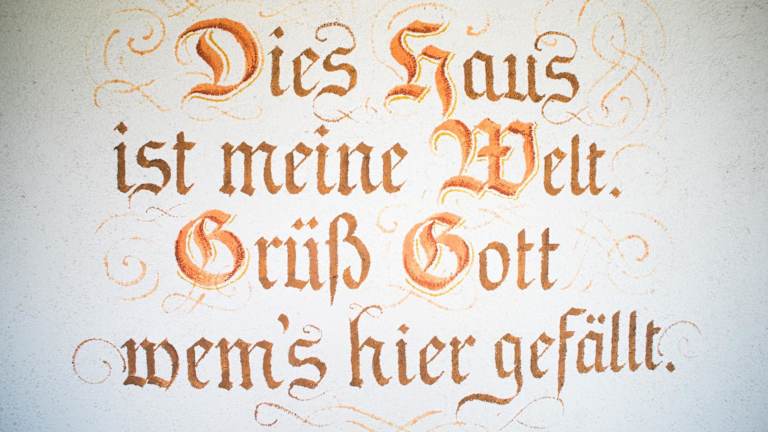 Dies Haus
ist meine Welt.
Grüß Gott
wem's hier gefällt.